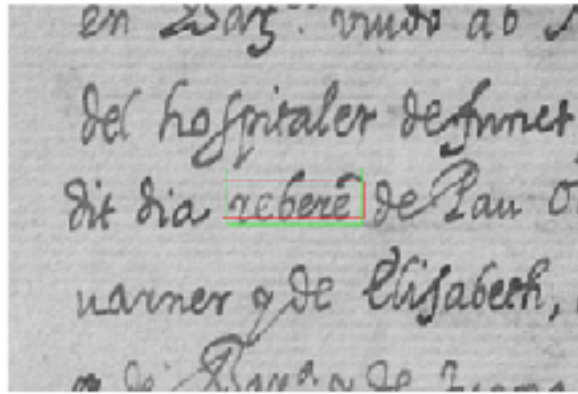 en Bar^a. viudo ab
del hospitaler defunct
dit dia reberē de Pau
varner y de Elisabeth,
y de Bar^a y de